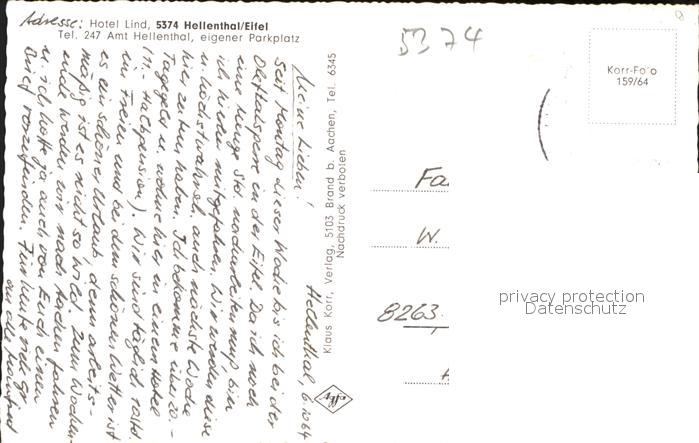 Adresse: Hotel Lind, 5374 Hellenthal/Eifel
Tel. 247 Amt Hellenthal, eigener Parkplatz
Hellenthal, 6.10.64
Meine Lieben!
Seit Montag dieser Woche bin ich bei der
Oleftalsperre in der Eifel. Da ich noch
eine Menge Std. nacharbeiten muß, bin
ich wieder mitgefahren. Wir werden diese
u. höchstwahrsch. auch nächste Woche
hier zu tun haben. Ich bekomme über 20.-
Tagegeld u. wohne hier in einem Hotel
(17.- Halbpension). Wir sind täglich
im Freien und bei dem schönen Wetter ist
es ein schöner Urlaub, denn arbeits-
mäßig ist es nicht so wild. Zum Wochen-
ende werden wir nach Aachen fahren
u. ich hoffe ja auch von Euch einen
Brief vorzufinden. Für heute
Klaus Korr, Verlag, 5103 Brand b. Aachen, Tel. 6345
Nachdruck verboten
Agfa
5374
Korr-Foto
159/64
Fa
W.
8263
privacy protection
Datenschutz